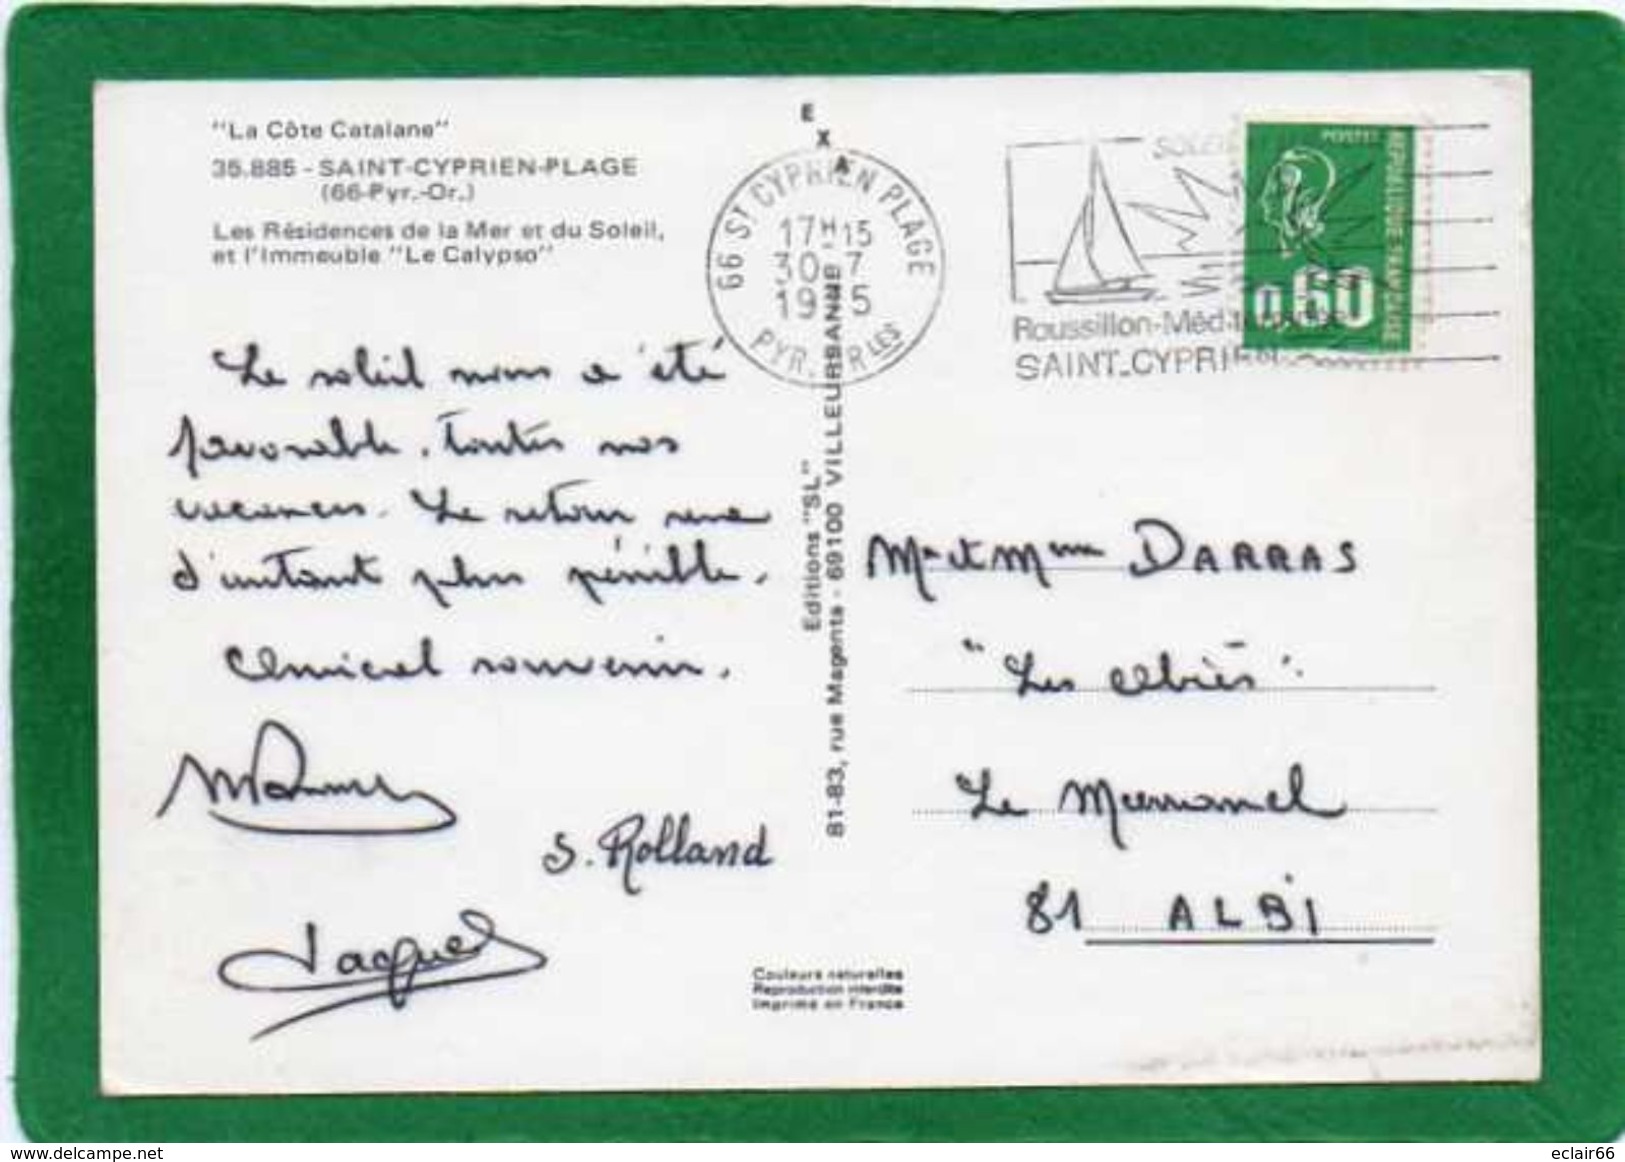 "La Côte Catalane"
35.885 - SAINT-CYPRIEN-PLAGE
(66-Pyr.-Or.)
Les Résidences de la Mer et du Soleil,
et l'Immeuble "Le Calypso"
Le soleil nous a été
favorable. toutes nos
vacances. Le retour sera
d'autant plus pénible.
Amical souvenir.
S. Rolland
Jacques
EXA
Editions "SL"
81-83, rue Magenta - 69100 VILLEURBANNE
Couleurs naturelles
Reproduction interdite
Imprimé en France
66 ST CYPRIEN PLAGE
17H15
30-7
19 5
PYR. RLES
SOLEIL
Roussillon-Méd
SAINT-CYPRIEN
POSTES
REPUBLIQUE FRANCAISE
0.60
Mr et Mme DARRAS
"Les Abiès".
Le
81 ALBI
eclair66